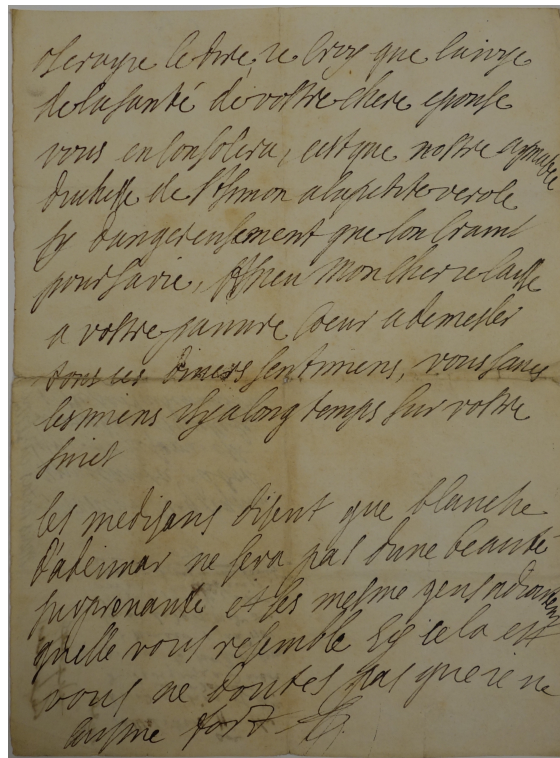 oserayie le dire, ie croy que la ioye
de la santé de vostre chere epouse
vous en consolera, cest que nostre aymable
duchesse de St Simon a la petite verole
sy dangereusement que lon craint
pour sa vie, adieu mon cher ie laisse
a vostre pauure coeur a demesler
tous ces diuers sentimens, vous saues
les miens il y a long temps sur vostre
suiet
les medisans disent que blanche
d'adeimar ne sera pas dune beauté
surprenante et les mesme gens adioutent
quelle vous resemble sy cela est
vous ne doutes pas que ie ne
l'aysme fort